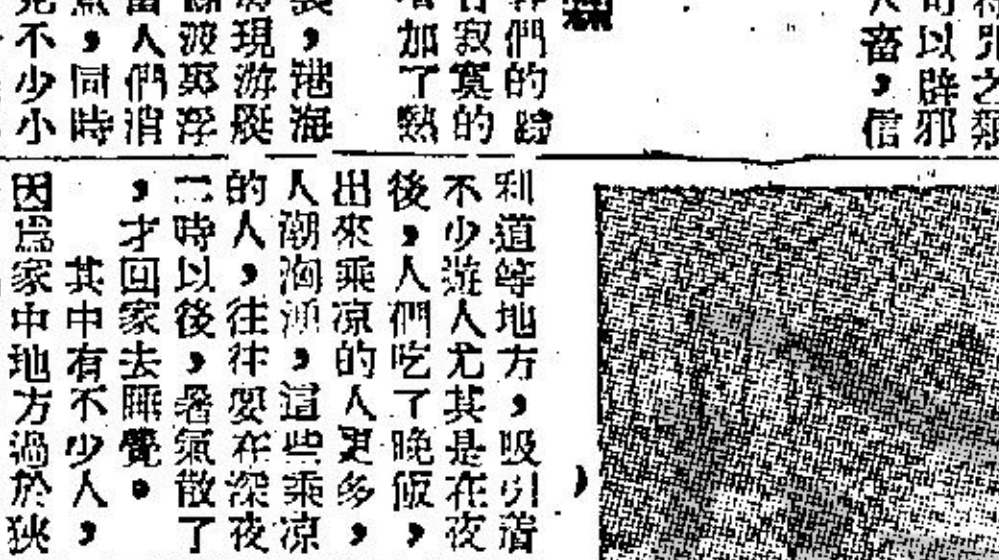 符咒之類
可以辟邪
人畜，信
們的
有寂寞的
增加了熱
，港海
現游艇
波裏浮
人們消
，同時
不少小
利道等地方，吸引着
不少遊人尤其是在夜
後，人們吃了晚飯，
出來乘凉的人更多，
人潮洶湧，這些乘凉
的人，往往要在深夜
二時以後，暑氣散了
，才回家去睡覺。
其中有不少人，
因爲家中地方過於狹